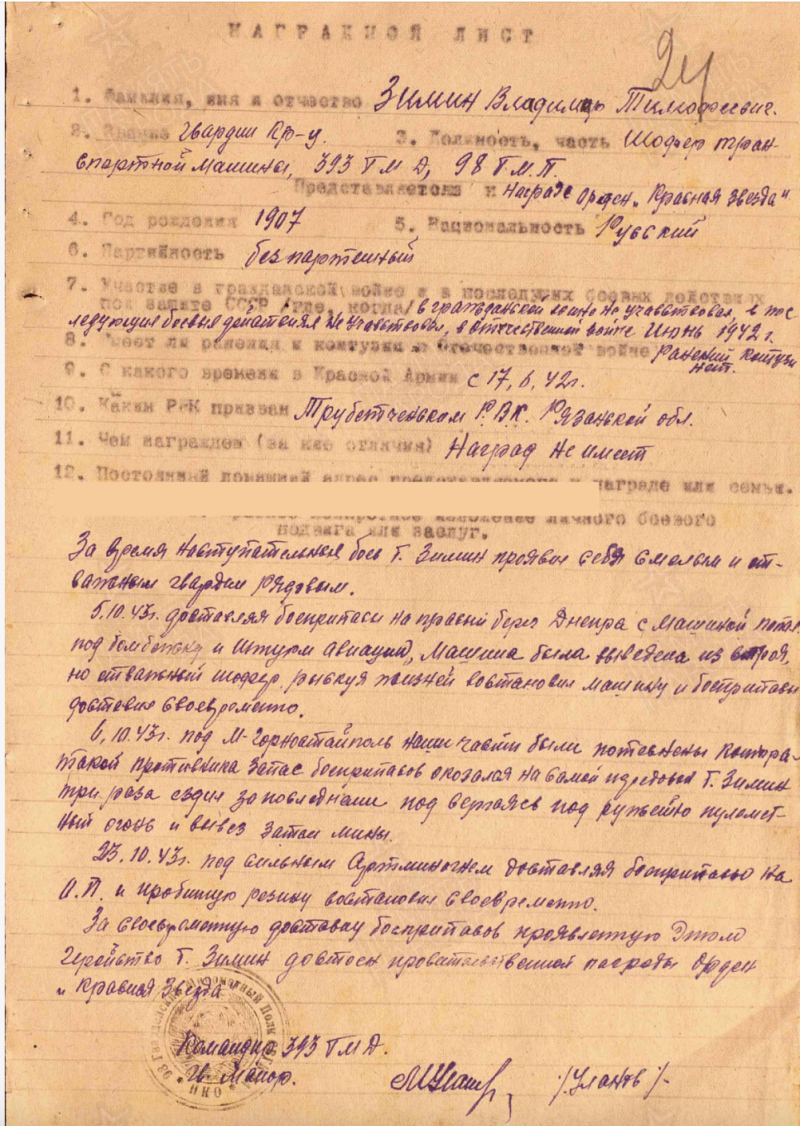 НАГРАДНОЙ ЛИСТ
24
1. Фамилия, имя и отчество Зимин Владимир Тимофеевич.
2. Звание Гвардии Кр-ц. 3. Должность, часть Шофер тран-
спортной машины, 393 ГМД, 98 Г.М.П.
Представляется к награде Орден „Красная Звезда"
4. Год рождения 1907 5. Национальность Руский
6. Партийность безпартейный
7. Участие в гражданской войне и в последующих боевых действиях
под защите СССР /где, когда/ в гражданской войне не участвовал, в пос-
ледующих боевых действиях не участвовал, в отечественной войне Июнь 1942 г.
8. Имеет ли ранения и контузии в Отечественной войне Ранений контузий
нет.
9. С какого времени в Красной Армии с 17,6,42г.
10. Каким РВК призван Трубетченским Р.В.К. Рязанской обл.
11. Чем награжден (за кие отличия) Наград не имеет
12. Постоянный домашний адрес представляемого к награде или семьи.
конкретное изложение личного боевого
подвига или заслуг.
За время наступательных боев Т. Зимин проявил себя смелым и от-
важным гвардии рядовым.
5.10.43г. доставляя боеприпасы на правый берег Днепра с машиной попал
под бомбежку и штурм авиации, машина была выведена из строя,
но отважный шофер рыскуя жизней востановил машину и боеприпасы
доставил своевременно.
6,10.43г. под М-Горностайполь наши части были потеснены контра-
такой противника запас боеприпасов оказался на самой передовой Т. Зимин
три раза ездил за последнами под вергаясь под ружейно пулемет-
ный огонь и вывез затем мины.
23.10.43г. под сильным Артминогнем доставлял боеприпасы на
О.П. и пробитую резину востановил своевременно.
За своевременную доставку боеприпасов проявленную Этом
Геройство Т. Зимин достоен правительственной награды Орден
„Красная Звезда
Командир 393 ГМД.
Гв. Майор. /Уланов/
98 Гвардейский Минометный Полк
НКО